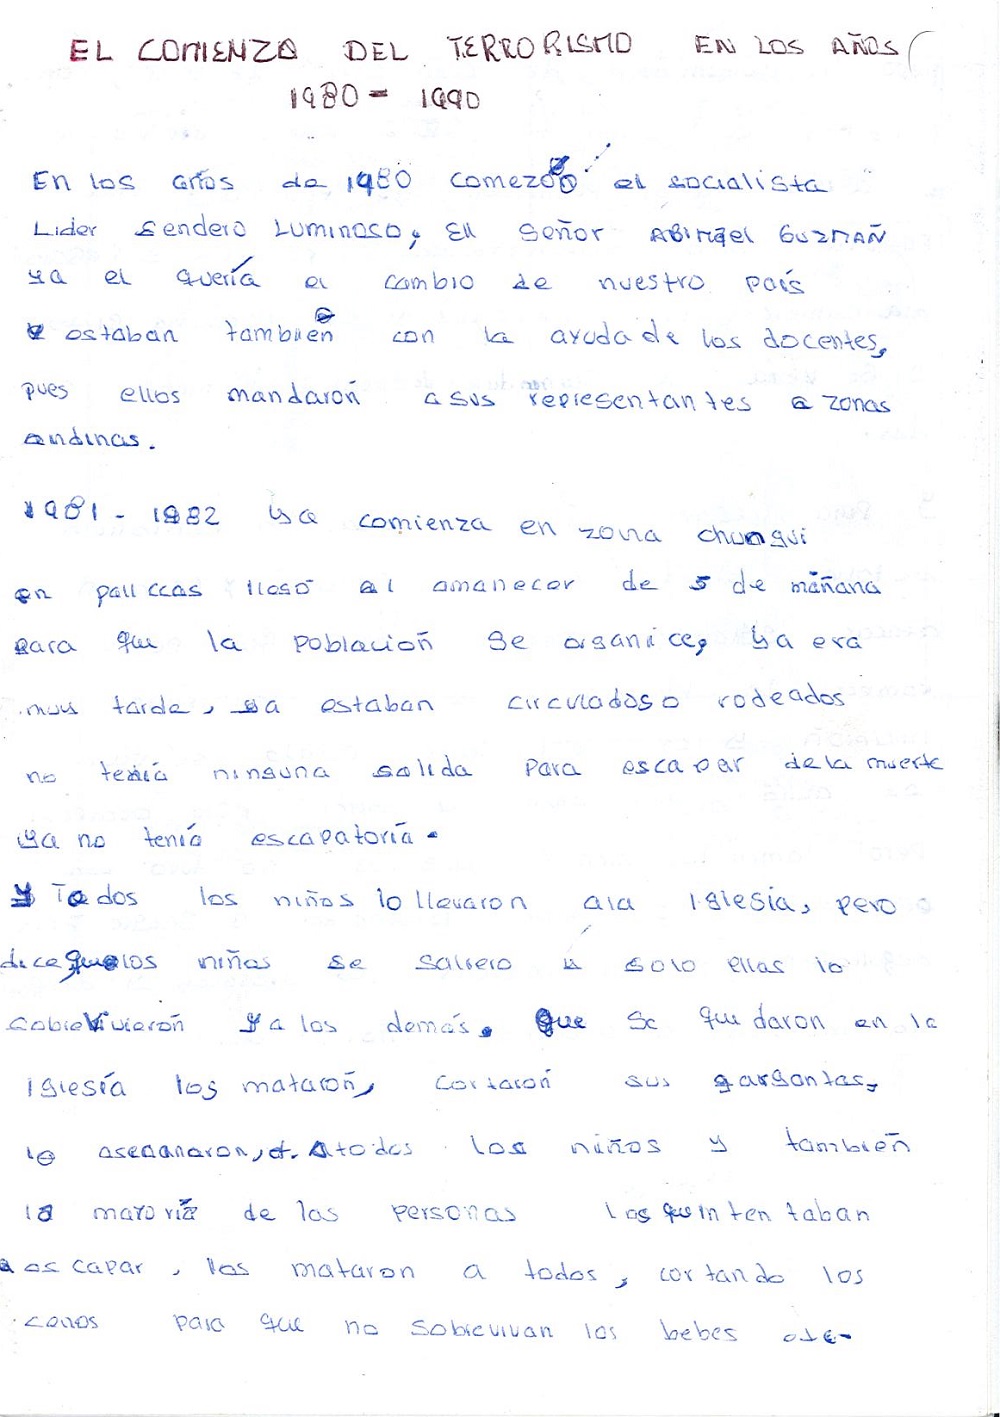 EL COMIENZO DEL TERRORISMO EN LOS AÑOS
1980 = 1990
En los años de 1980 comezo el socialista
Lider Sendero Luminoso, El Señor ABIMael GUZMAÑ
ya el quería el cambio de nuestro país
y estaban tambieñ con la ayuda de los docentes,
pues ellos mandaroñ a sus representantes a zonas
andinas.
1981 - 1982 ya comienza en zona chungui
en pallccas llego al amanecer de 5 de mañana
para que la poblacioñ se organice, ya era
muy tarde, ya estaban circulados o rodeados
no tenía ninguna salida para escapar dela muerte
ya no tenía escapatoría.
y Todos los niños lo llevaron ala Iglesia, pero
dice que los niños se saliero y solo ellas lo
sobreviveroñ y a los demás. que se quedaron en la
iglesía los mataroñ, cortaroñ sus gargantas,
lo asesanaron, A todos los niños y tambieñ
la mayoría de las personas los quintentaban
a escapar, los mataron a todos, cortando los
senos para que no sobrevivan los bebes